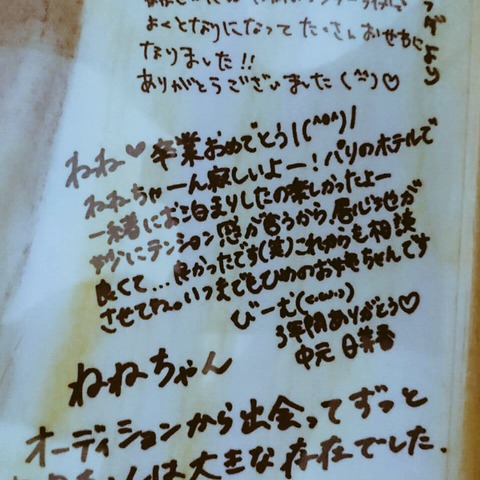 よくとなりになってたくさんおせわに
なりました!!
ありがとうございました(^^)♡
より
ねね♡卒業おめでとう\(^o^)/
ねねちゃーん寂しいよー!パリのホテルで
一緒にお泊まりしたの楽しかったよー
妙にテンション感が合うから居心地が
良くて…良かったです(笑)これからも相談
させてね。いつまでもひめのお姉ちゃんです
びーむ(・ω・)
3年間ありがとう♡
中元日芽香
ねねちゃん
オーディションから出会ってずっと
は大きな存在でした.